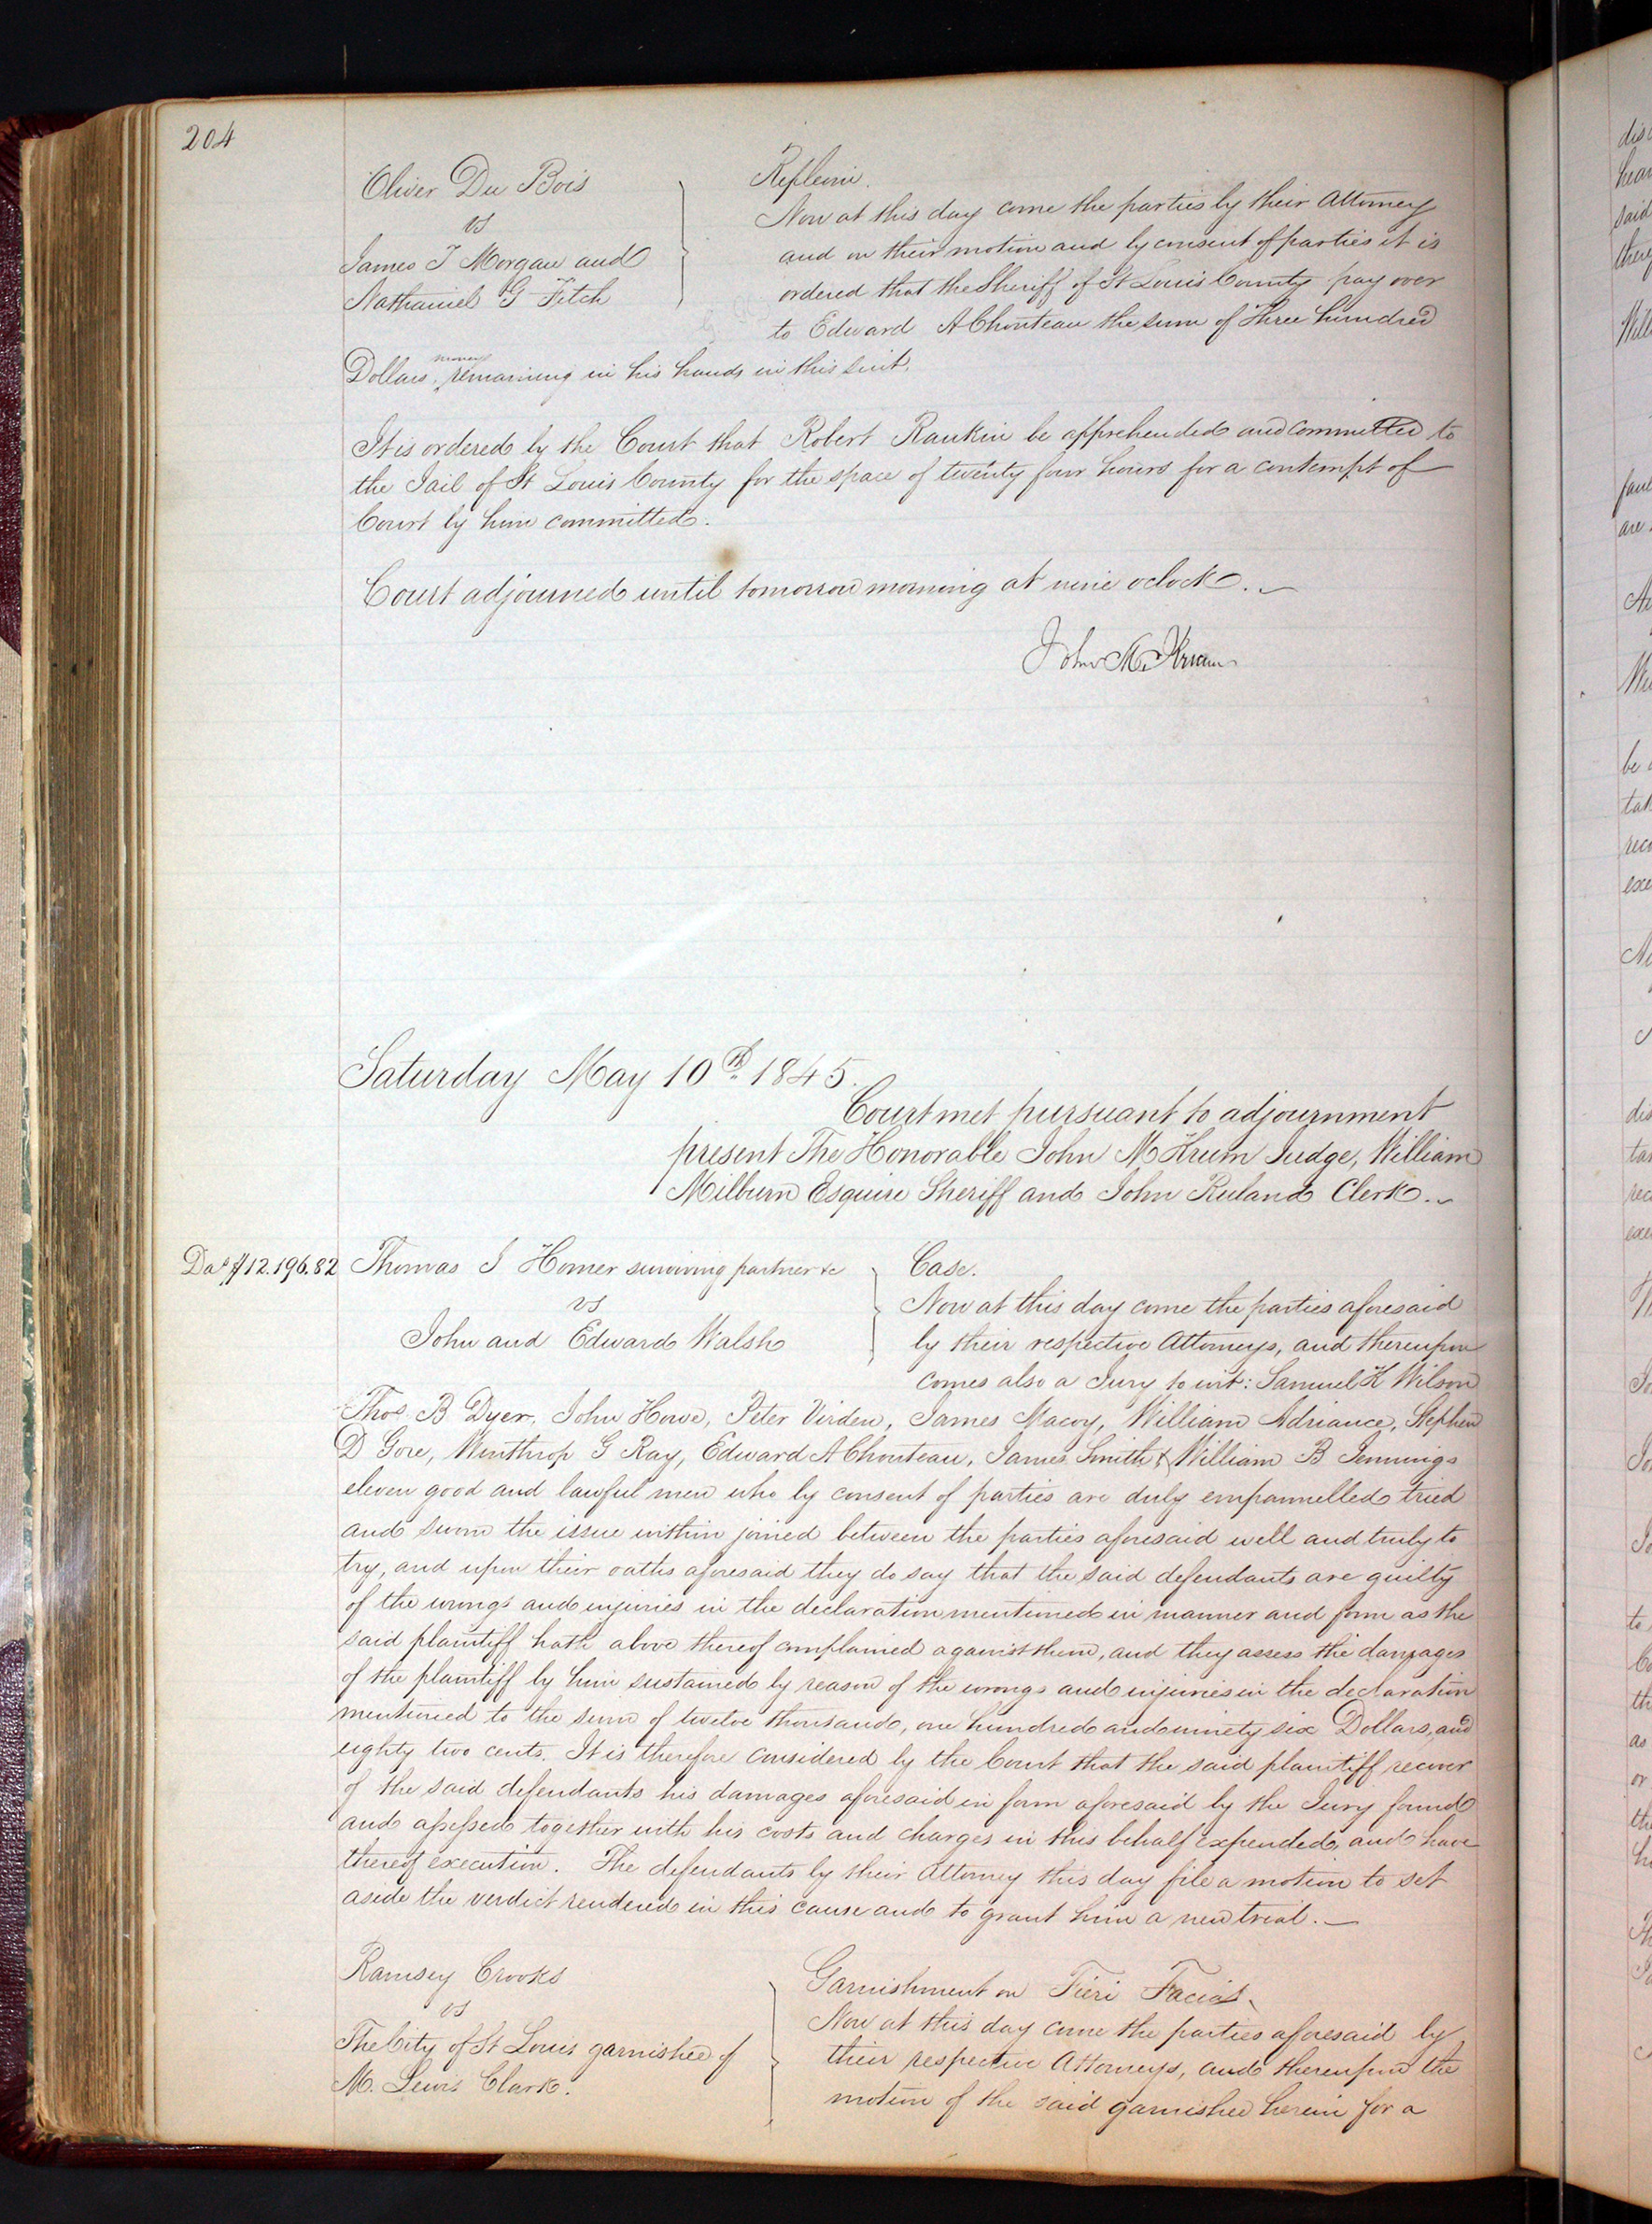 204
Oliver Du Bois
vs
James T Morgan and
Nathaniel G Fitch
Replevin.
Now at this day come the parties by their Attorney
and on their motion and by consent of parties it is
ordered that the Sheriff of St Louis County pay over
to Edward A Chouteau the sum of Three hundred
Dollars, money remaining in his hands in this suit.
It is ordered by the Court that Robert Rankin be apprehended and committed to
the Jail of St Louis County for the space of twenty four hours for a contempt of
Court by him committed.
Court adjourned until tomorrow morning at nine oclock.
John M. Krum
Saturday May 10th 1845.
Court met pursuant to adjournment
present The Honorable John M Krum Judge, William
Milburn Esquire Sheriff and John Ruland Clerk.
Das $12.196.82
Thomas J Homer surviving partner &c
vs
John and Edward Walsh
Case.
Now at this day come the parties aforesaid
by their respective Attorneys, and thereupon
comes also a Jury to wit: Samuel H Wilson
Thos. B Dyer, John Howe, Peter Virden, James Macoy, William Adriance, Stephen
D Gore, Winthrop G Ray, Edward A Chouteau, James Smith & William B Jennings
eleven good and lawful men who by consent of parties are duly empannelled tried
and sworn the issue within joined between the parties aforesaid well and truly to
try, and upon their oaths aforesaid they do say that the said defendants are guilty
of the wrongs and injuries in the declaration mentioned in manner and form as the
said plaintiff hath above thereof complained against them, and they assess the damages
of the plaintiff by him sustained by reason of the wrongs and injuries in the declaration
mentioned to the sum of twelve thousand, one hundred and ninety six Dollars, and
eighty two cents. It is therefore considered by the Court that the said plaintiff recover
of the said defendants his damages aforesaid in form aforesaid by the Jury found
and assessed together with his costs and charges in this behalf expended, and have
thereof execution. The defendants by their Attorney this day file a motion to set
aside the verdict rendered in this cause and to grant him a new trial.
Ramsey Crooks
vs
The City of St Louis garnishee of
M. Lewis Clark.
Garnishment on Fieri Facias
Now at this day come the parties aforesaid by
their respective Attorneys, and thereupon the
motion of the said garnishee herein for a